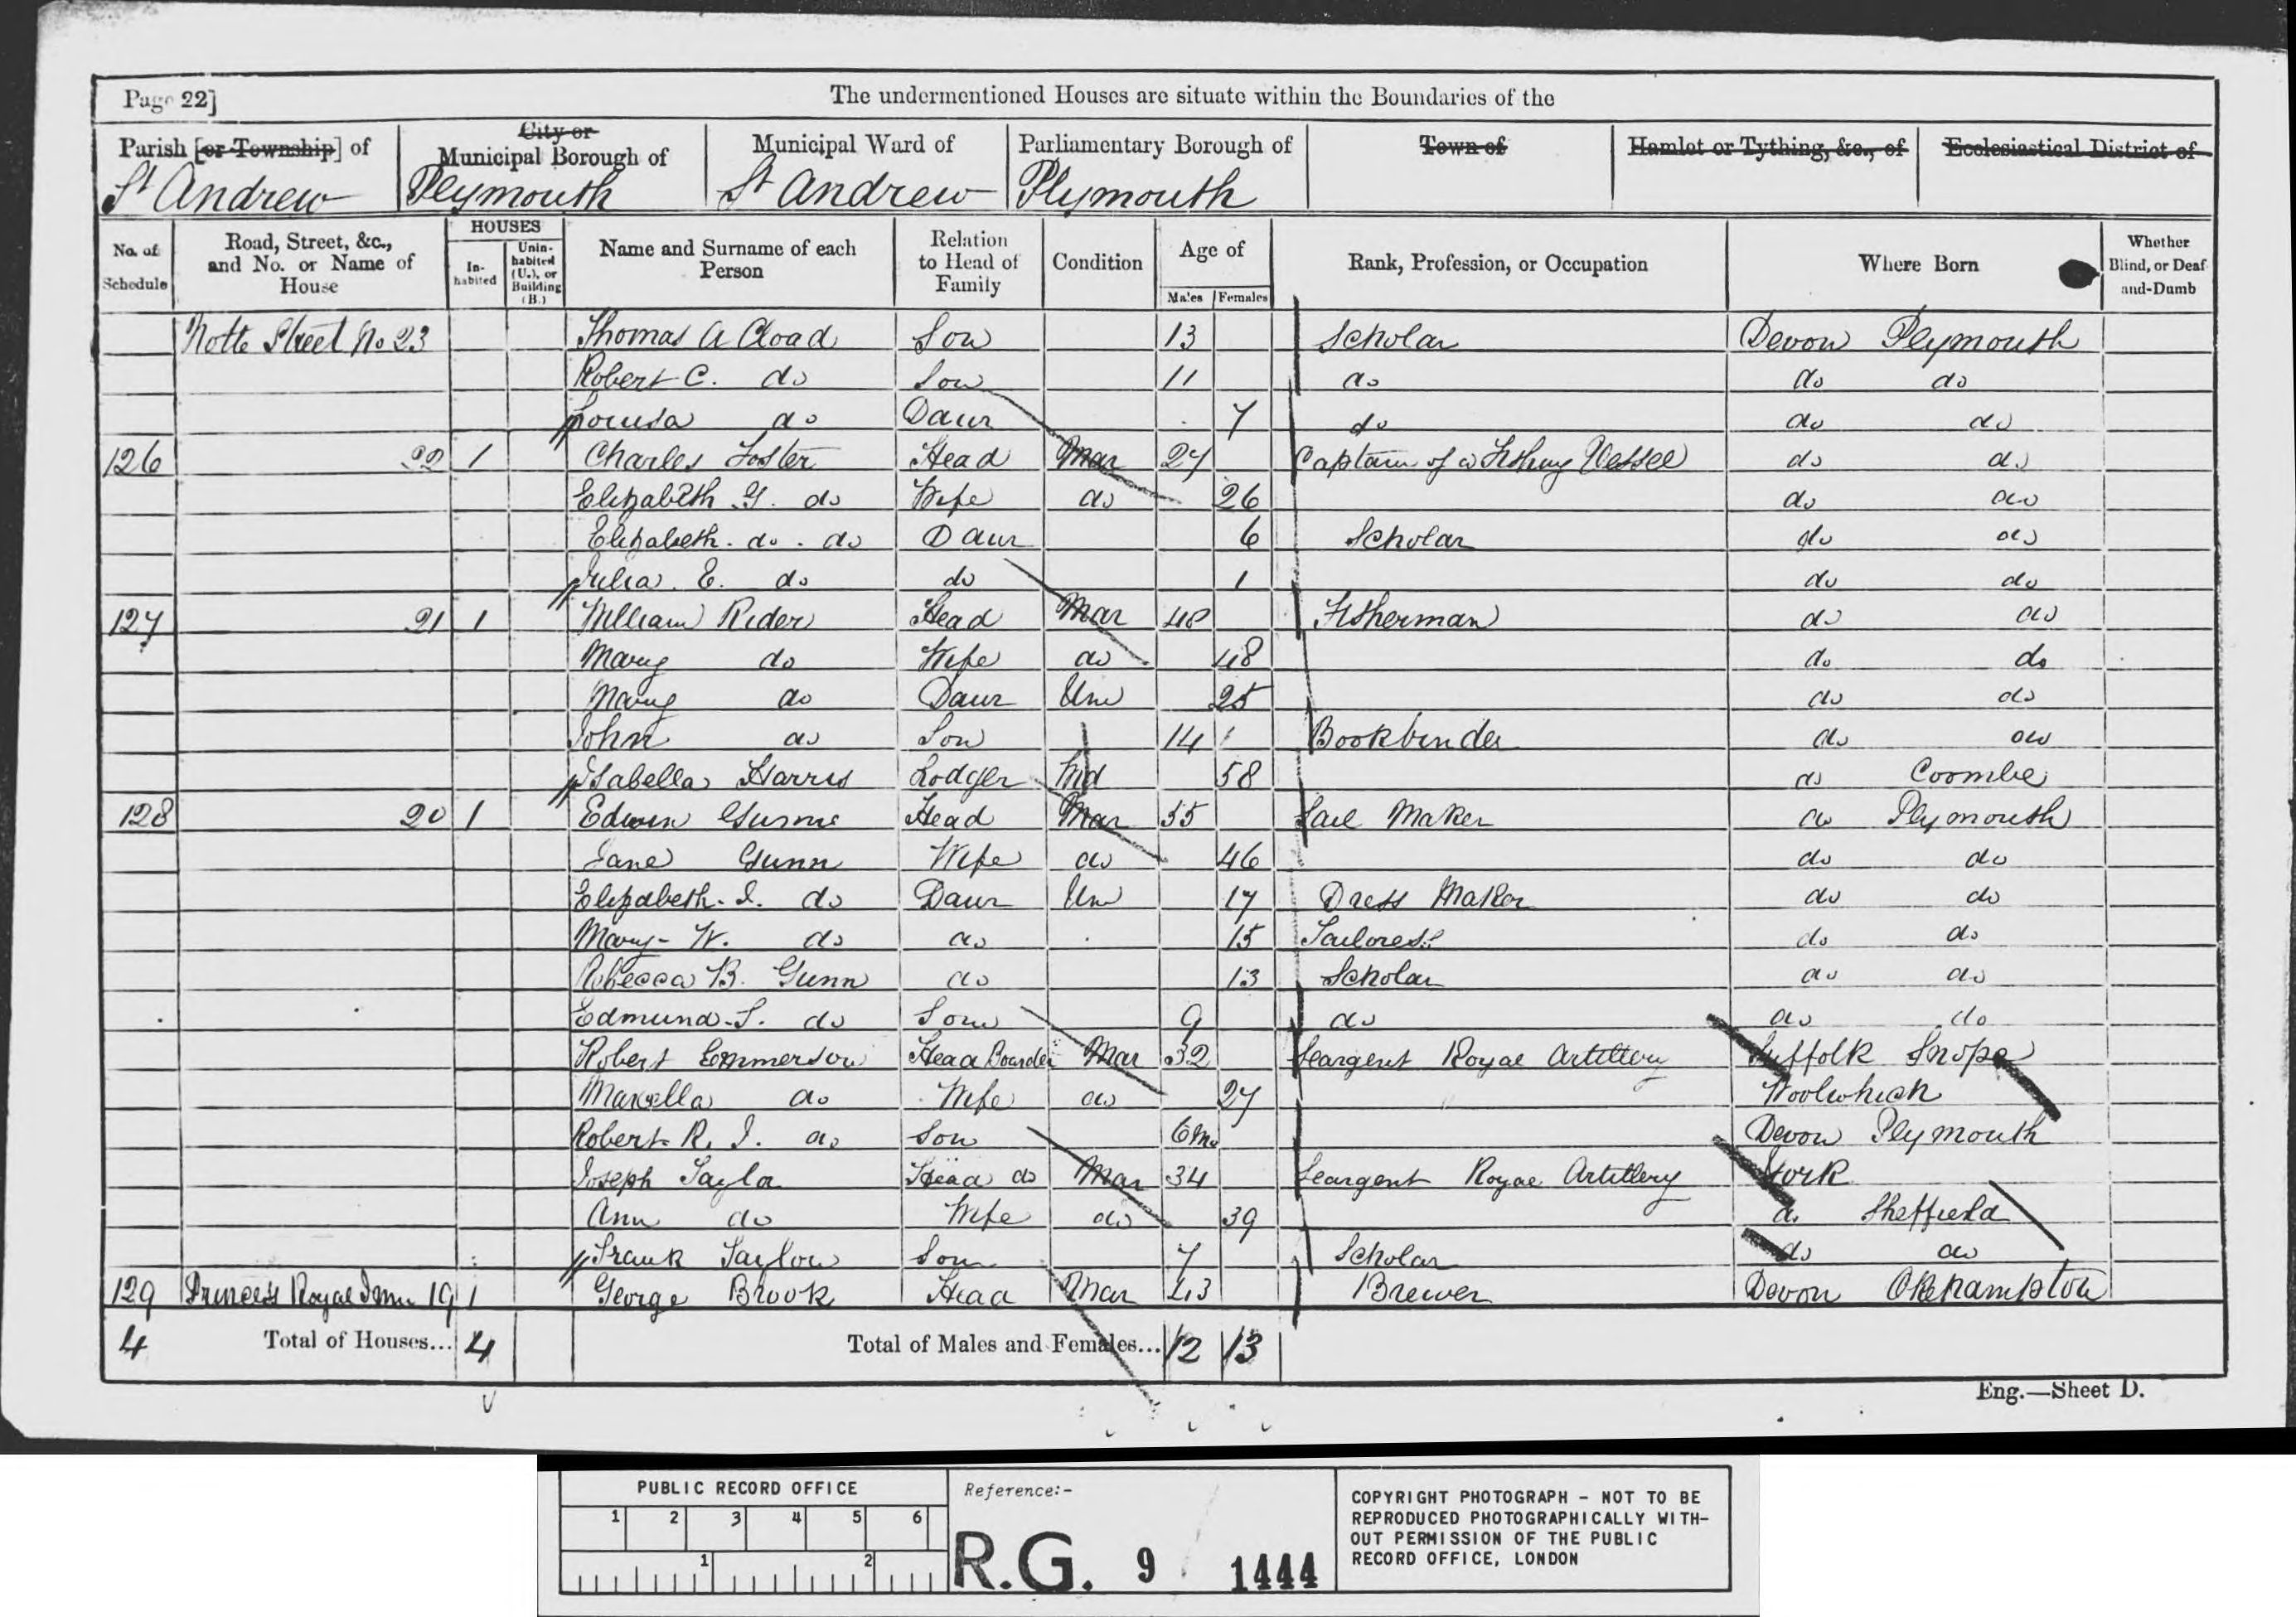 Page 22]
The undermentioned Houses are situate within the Boundaries of the
Parish [or Township] of
City or Municipal Borough of
Municipal Ward of
Parliamentary Borough of
Town of
Hamlet or Tything, &c., of
Ecclesiastical District of
St Andrew
Plymouth
St Andrew
Plymouth
No. of Schedule
Road, Street, &c., and No. or Name of House
HOUSES
In-habited
Unin-habited (U.), or Building (B.)
Name and Surname of each Person
Relation to Head of Family
Condition
Age of
Males
Females
Rank, Profession, or Occupation
Where Born
Whether Blind, or Deaf-and-Dumb
Notte Street No 23 Thomas A Cload Son 13 Scholar Devon Plymouth
Robert C. do Son 11 do do do
Louisa do Daur 7 do do do
126 22 1 Charles Foster Head Mar 27 Captain of a Fishing Vessel do do
Elizabeth G. do Wife do 26 do do
Elizabeth. do. do Daur 6 Scholar do do
Julia. E. do do 1 do do
127 21 1 William Rider Head Mar 48 Fisherman do do
Mary do Wife do 48 do do
Mary do Daur Un 25 do do
John do Son 14 Bookbinder do do
Isabella Harris Lodger Wd 58 do Coombe
128 20 1 Edwin Head Mar 55 Sail Maker do Plymouth
Jane Gunn Wife do 46 do do
Elizabeth. J. do Daur Un 17 Dress Maker do do
Mary- W. do do 15 Tailoress do do
Rebecca B. Gunn do 13 Scholar do do
Edmund. S. do Son 9 do do do
Robert Emmerson Head Boarder Mar 32 Seargent Royal Artillery Suffolk Snope
Marcella do Wife do 27 Woolwhich
Robert R. J. do Son 6 Mo Devon Plymouth
Joseph Taylor Head do Mar 34 Seargent Royal Artillery York
Ann do Wife do 39 do Sheffield
Frank Taylor Son 7 Scholar do do
129 Princess Royal Inn 19 1 George Brook Head Mar 43 Brewer Devon Okehampton
4 Total of Houses... 4 Total of Males and Females... 12 13
Eng.—Sheet D.
PUBLIC RECORD OFFICE
1 2 3 4 5 6
1 2
Reference:-
R.G. 9 1444
COPYRIGHT PHOTOGRAPH - NOT TO BE
REPRODUCED PHOTOGRAPHICALLY WITH-
OUT PERMISSION OF THE PUBLIC
RECORD OFFICE, LONDON